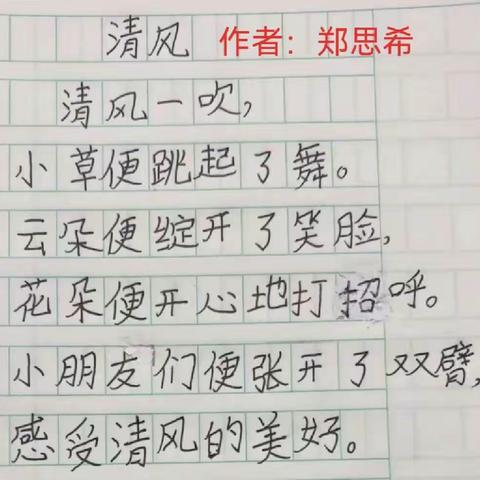 清风 作者：郑思希
清风一吹，
小草便跳起了舞。
云朵便绽开了笑脸，
花朵便开心地打招呼。
小朋友们便张开了双臂，
感受清风的美好。